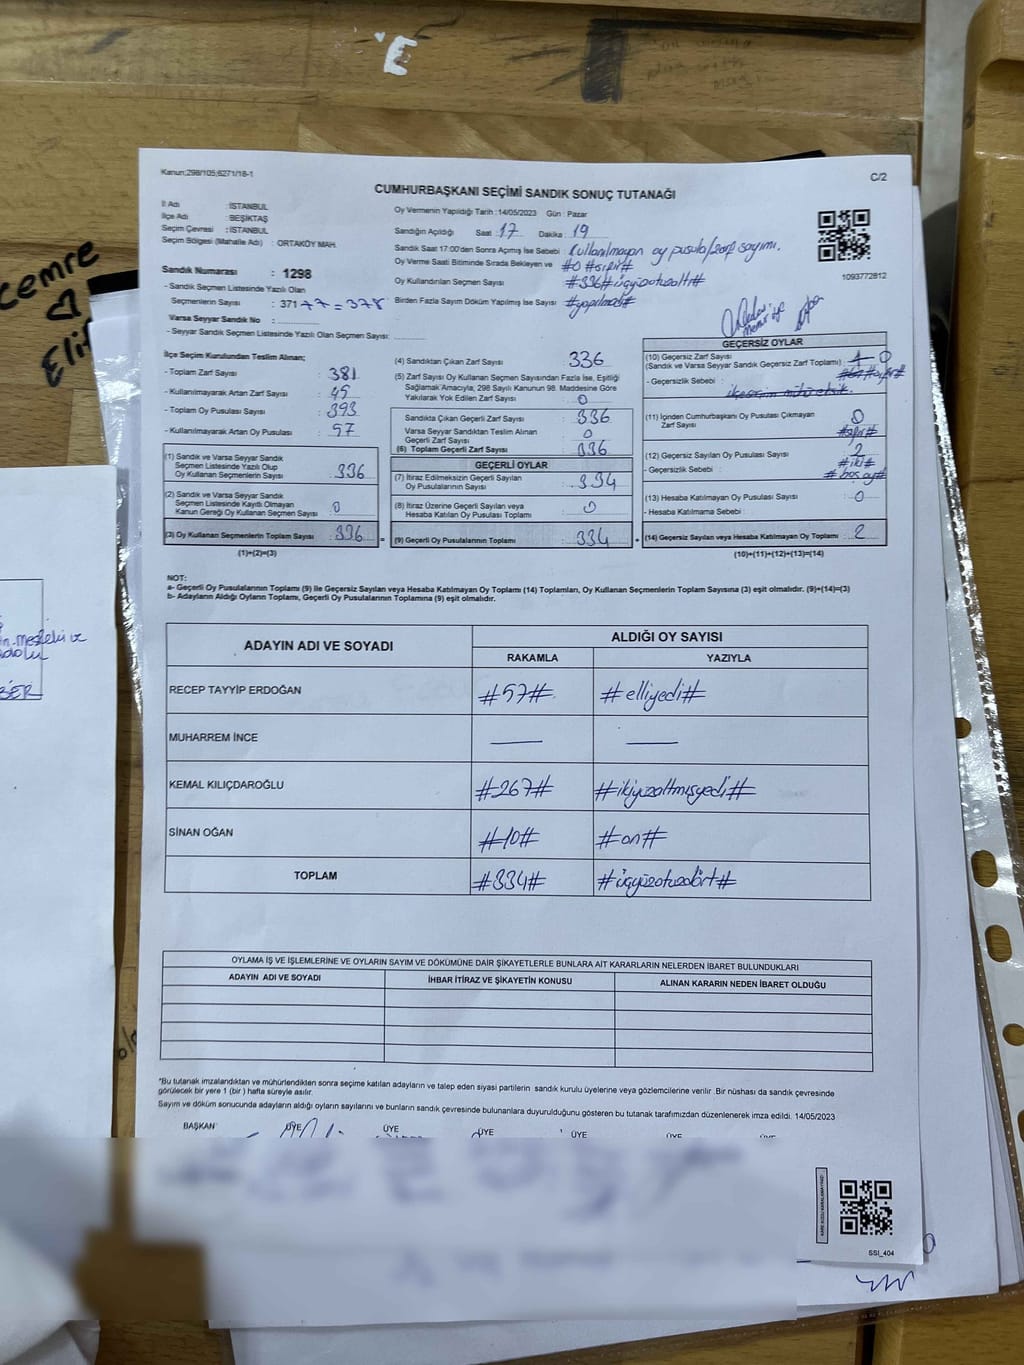 E
cemre
Elif
Kanun;298/105;6271/18-1
C/2
CUMHURBAŞKANI SEÇİMİ SANDIK SONUÇ TUTANAĞI
İl Adı : İSTANBUL
İlçe Adı : BEŞİKTAŞ
Seçim Çevresi : İSTANBUL
Seçim Bölgesi (Mahalle Adı) : ORTAKÖY MAH.
Sandık Numarası : 1298
- Sandık Seçmen Listesinde Yazılı Olan
Seçmenlerin Sayısı : 371+7=378
Varsa Seyyar Sandık No :
- Seyyar Sandık Seçmen Listesinde Yazılı Olan Seçmen Sayısı:
Oy Vermenin Yapıldığı Tarih : 14/05/2023 Gün : Pazar
Sandığın Açıldığı Saat 17 Dakika 19
Sandık Saat 17:00'den Sonra Açımış İse Sebebi Kullanılmayan oy pusula/zarf sayımı.
Oy Verme Saati Bitiminde Sırada Bekleyen ve #0 #sıfır#
Oy Kullandırılan Seçmen Sayısı #336#üçyüzotuzaltı#
Birden Fazla Sayım Döküm Yapılmış İse Sayısı #yapılmadı#
1093772812
İlçe Seçim Kurulundan Teslim Alınan;
- Toplam Zarf Sayısı : 381
- Kullanılmayarak Artan Zarf Sayısı : 45
- Toplam Oy Pusulası Sayısı : 393
- Kullanılmayarak Artan Oy Pusulası : 57
(1) Sandık ve Varsa Seyyar Sandık
Seçmen Listesinde Yazılı Olup
Oy Kullanan Seçmenlerin Sayısı : 336
(2) Sandık ve Varsa Seyyar Sandık
Seçmen Listesinde Kayıtlı Olmayan
Kanun Gereği Oy Kullanan Seçmen Sayısı : 0
(3) Oy Kullanan Seçmenlerin Toplam Sayısı : 336
(1)+(2)=(3)
(4) Sandıktan Çıkan Zarf Sayısı 336
(5) Zarf Sayısı Oy Kullanan Seçmen Sayısından Fazla İse, Eşitliği
Sağlamak Amacıyla, 298 Sayılı Kanunun 98. Maddesine Göre
Yakılarak Yok Edilen Zarf Sayısı : 0
Sandıkta Çıkan Geçerli Zarf Sayısı : 336
Varsa Seyyar Sandıktan Teslim Alınan
Geçerli Zarf Sayısı : 0
(6) Toplam Geçerli Zarf Sayısı : 336
GEÇERLİ OYLAR
(7) İtiraz Edilmeksizin Geçerli Sayılan
Oy Pusulalarının Sayısı : 334
(8) İtiraz Üzerine Geçerli Sayılan veya
Hesaba Katılan Oy Pusulası Toplamı : 0
(9) Geçerli Oy Pusulalarının Toplamı : 334
GEÇERSİZ OYLAR
(10) Geçersiz Zarf Sayısı 0
(Sandık ve Varsa Seyyar Sandık Geçersiz Zarf Toplamı)
- Geçersizlik Sebebi :
(11) İçinden Cumhurbaşkanı Oy Pusulası Çıkmayan
Zarf Sayısı 0
#sıfır#
(12) Geçersiz Sayılan Oy Pusulası Sayısı : 2
#iki#
- Geçersizlik Sebebi : #boş oy#
(13) Hesaba Katılmayan Oy Pusulası Sayısı : 0
- Hesaba Katılmama Sebebi :
(14) Geçersiz Sayılan veya Hesaba Katılmayan Oy Toplamı : 2
(10)+(11)+(12)+(13)=(14)
NOT:
a- Geçerli Oy Pusulalarının Toplamı (9) ile Geçersiz Sayılan veya Hesaba Katılmayan Oy Toplamı (14) Toplamları, Oy Kullanan Seçmenlerin Toplam Sayısına (3) eşit olmalıdır. (9)+(14)=(3)
b- Adayların Aldığı Oyların Toplamı, Geçerli Oy Pusulalarının Toplamına (9) eşit olmalıdır.
ADAYIN ADI VE SOYADI
ALDIĞI OY SAYISI
RAKAMLA YAZIYLA
RECEP TAYYİP ERDOĞAN #57# #elliyedi#
MUHARREM İNCE — —
KEMAL KILIÇDAROĞLU #267# #ikiyüzaltmışyedi#
SİNAN OĞAN #10# #on#
TOPLAM #334# #üçyüzotuzdört#
OYLAMA İŞ VE İŞLEMLERİNE VE OYLARIN SAYIM VE DÖKÜMÜNE DAİR ŞİKAYETLERLE BUNLARA AİT KARARLARIN NELERDEN İBARET BULUNDUKLARI
ADAYIN ADI VE SOYADI İHBAR İTİRAZ VE ŞİKAYETİN KONUSU ALINAN KARARIN NEDEN İBARET OLDUĞU
*Bu tutanak imzalandıktan ve mühürlendikten sonra seçime katılan adayların ve talep eden siyasi partilerin sandık kurulu üyelerine veya gözlemcilerine verilir .Bir nüshası da sandık çevresinde
görülecek bir yere 1 (bir ) hafta süreyle asılır.
Sayım ve döküm sonucunda adayların aldığı oyların sayılarını ve bunların sandık çevresinde bulunanlara duyurulduğunu gösteren bu tutanak tarafımızdan düzenlenerek imza edildi. 14/05/2023
BAŞKAN ÜYE ÜYE ÜYE ÜYE ÜYE ÜYE
SSI_404